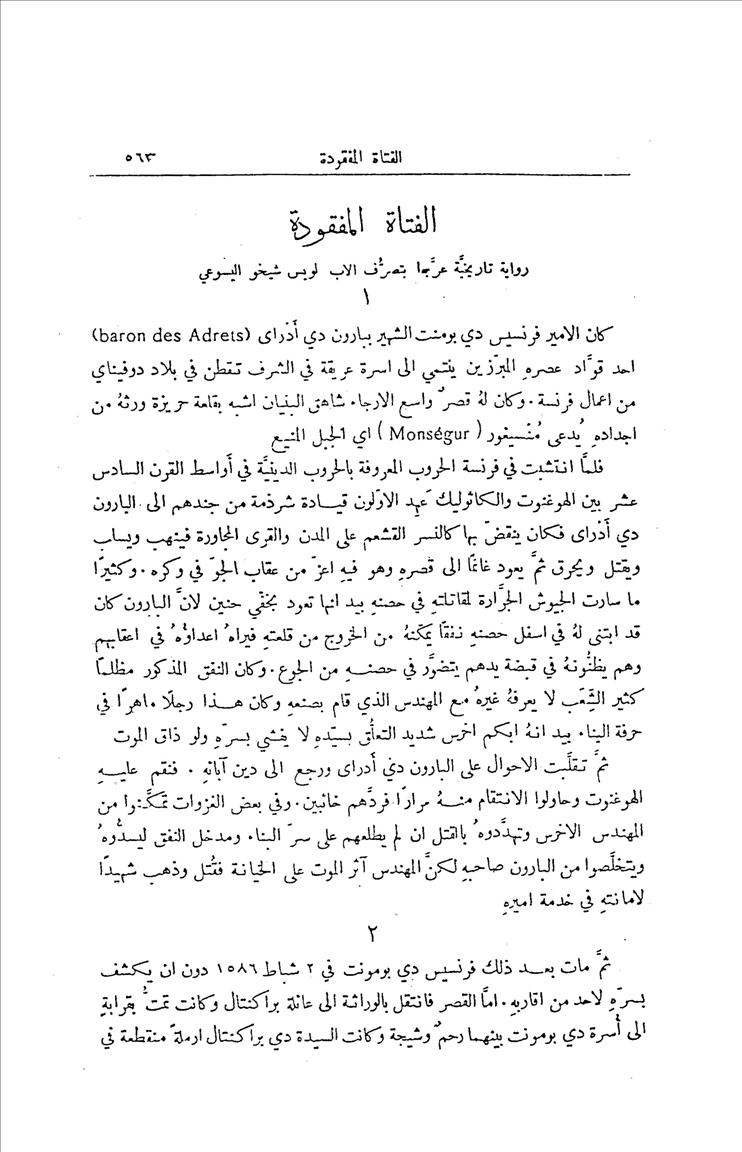 الفتاة المفقودة ٥٦٣
الفتاة المفقودة
رواية تاريخيَّة عرَّبها بتصرُّف الاب لويس شيخو اليسوعي
١
كان الامير فرنسيس دي بومنت الشهير ببارون دي أَدْراى (baron des Adrets)
احد قوَّاد عصرهِ المبرّزين ينتمي الى اسرة عريقة في الشرف تقطن في بلاد دوفيناي
من اعمال فرنسة. وكان لهُ قصرٌ واسع الارجاء شاهق البنيان اشبه بقلعة حريزة ورثهُ من
اجدادهِ يُدعى مُنْسيغور (Monségur) اي الجبل المنيع
فلمَّا انتشبت في فرنسة الحروب المعروفة بالحروب الدينيَّة في أَواسط القرن السادس
عشر بين الهوغنوت والكاثوليك عَهِد الاوَّلون قيادة شرذمة من جندهم الى البارون
دي أَدْراى فكان ينقضّ بها كالنسر القشعم على المدن والقرى المجاورة فينهب ويسلب
ويقتل ويحرق ثمَّ يعود غانمًا الى قصرهِ وهو فيهِ اعزّ من عقاب الجوّ في وكره. وكثيرًا
ما سارت الجيوش الجرَّارة لمقاتلتهِ في حصنهِ بيد انها تعود بخفَّي حنين لانَّ البارون كان
قد ابتنى لهُ في اسفل حصنهِ نفقًا يمكّنهُ من الخروج من قلعتهِ فيراهُ اعداؤُهُ في اعقابهم
وهم يظنُّونهُ في قبضة يدهم يتضوَّر في حصنهِ من الجوع. وكان النفق المذكور مظلمًا
كثير الشِّعَب لا يعرفهُ غيرهُ مع المهندس الذي قام بصنعهِ وكان هذا رجلًا ماهرًا في
حرفة البناء بيد انهُ ابكم اخرس شديد التعلُّق بسيّدهِ لا يفشي بسرّهِ ولو ذاق الموت
ثمَّ تقلَّبت الاحوال على البارون دي أَدراى ورجع الى دين آبائهِ. فنقم عليهِ
الهوغنوت وحاولوا الانتقام منهُ مرارًا فردَّهم خائبين. وفي بعض الغزوات تمكَّنوا من
المهندس الاخرس وتهدَّدوهُ بالقتل ان لم يطلعهم على سرّ البناء ومدخل النفق ليسدُّوهُ
ويتخلَّصوا من البارون صاحبهِ لكنَّ المهندس آثر الموت على الخيانة فقُتل وذهب شهيدًا
لامانتهِ في خدمة اميرهِ
٢
ثمَّ مات بعد ذلك فرنسيس دي بومونت في ٢ شباط ١٥٨٦ دون ان يكشف
بسرّهِ لاحد من اقاربهِ. امَّا القصر فانتقل بالوراثة الى عائلة براكنتال وكانت تمتُّ بقرابةٍ
الى أُسرة دي بومونت بينهما رحمٌ وشيجة وكانت السيدة دي براكنتال ارملةً منقطعة في